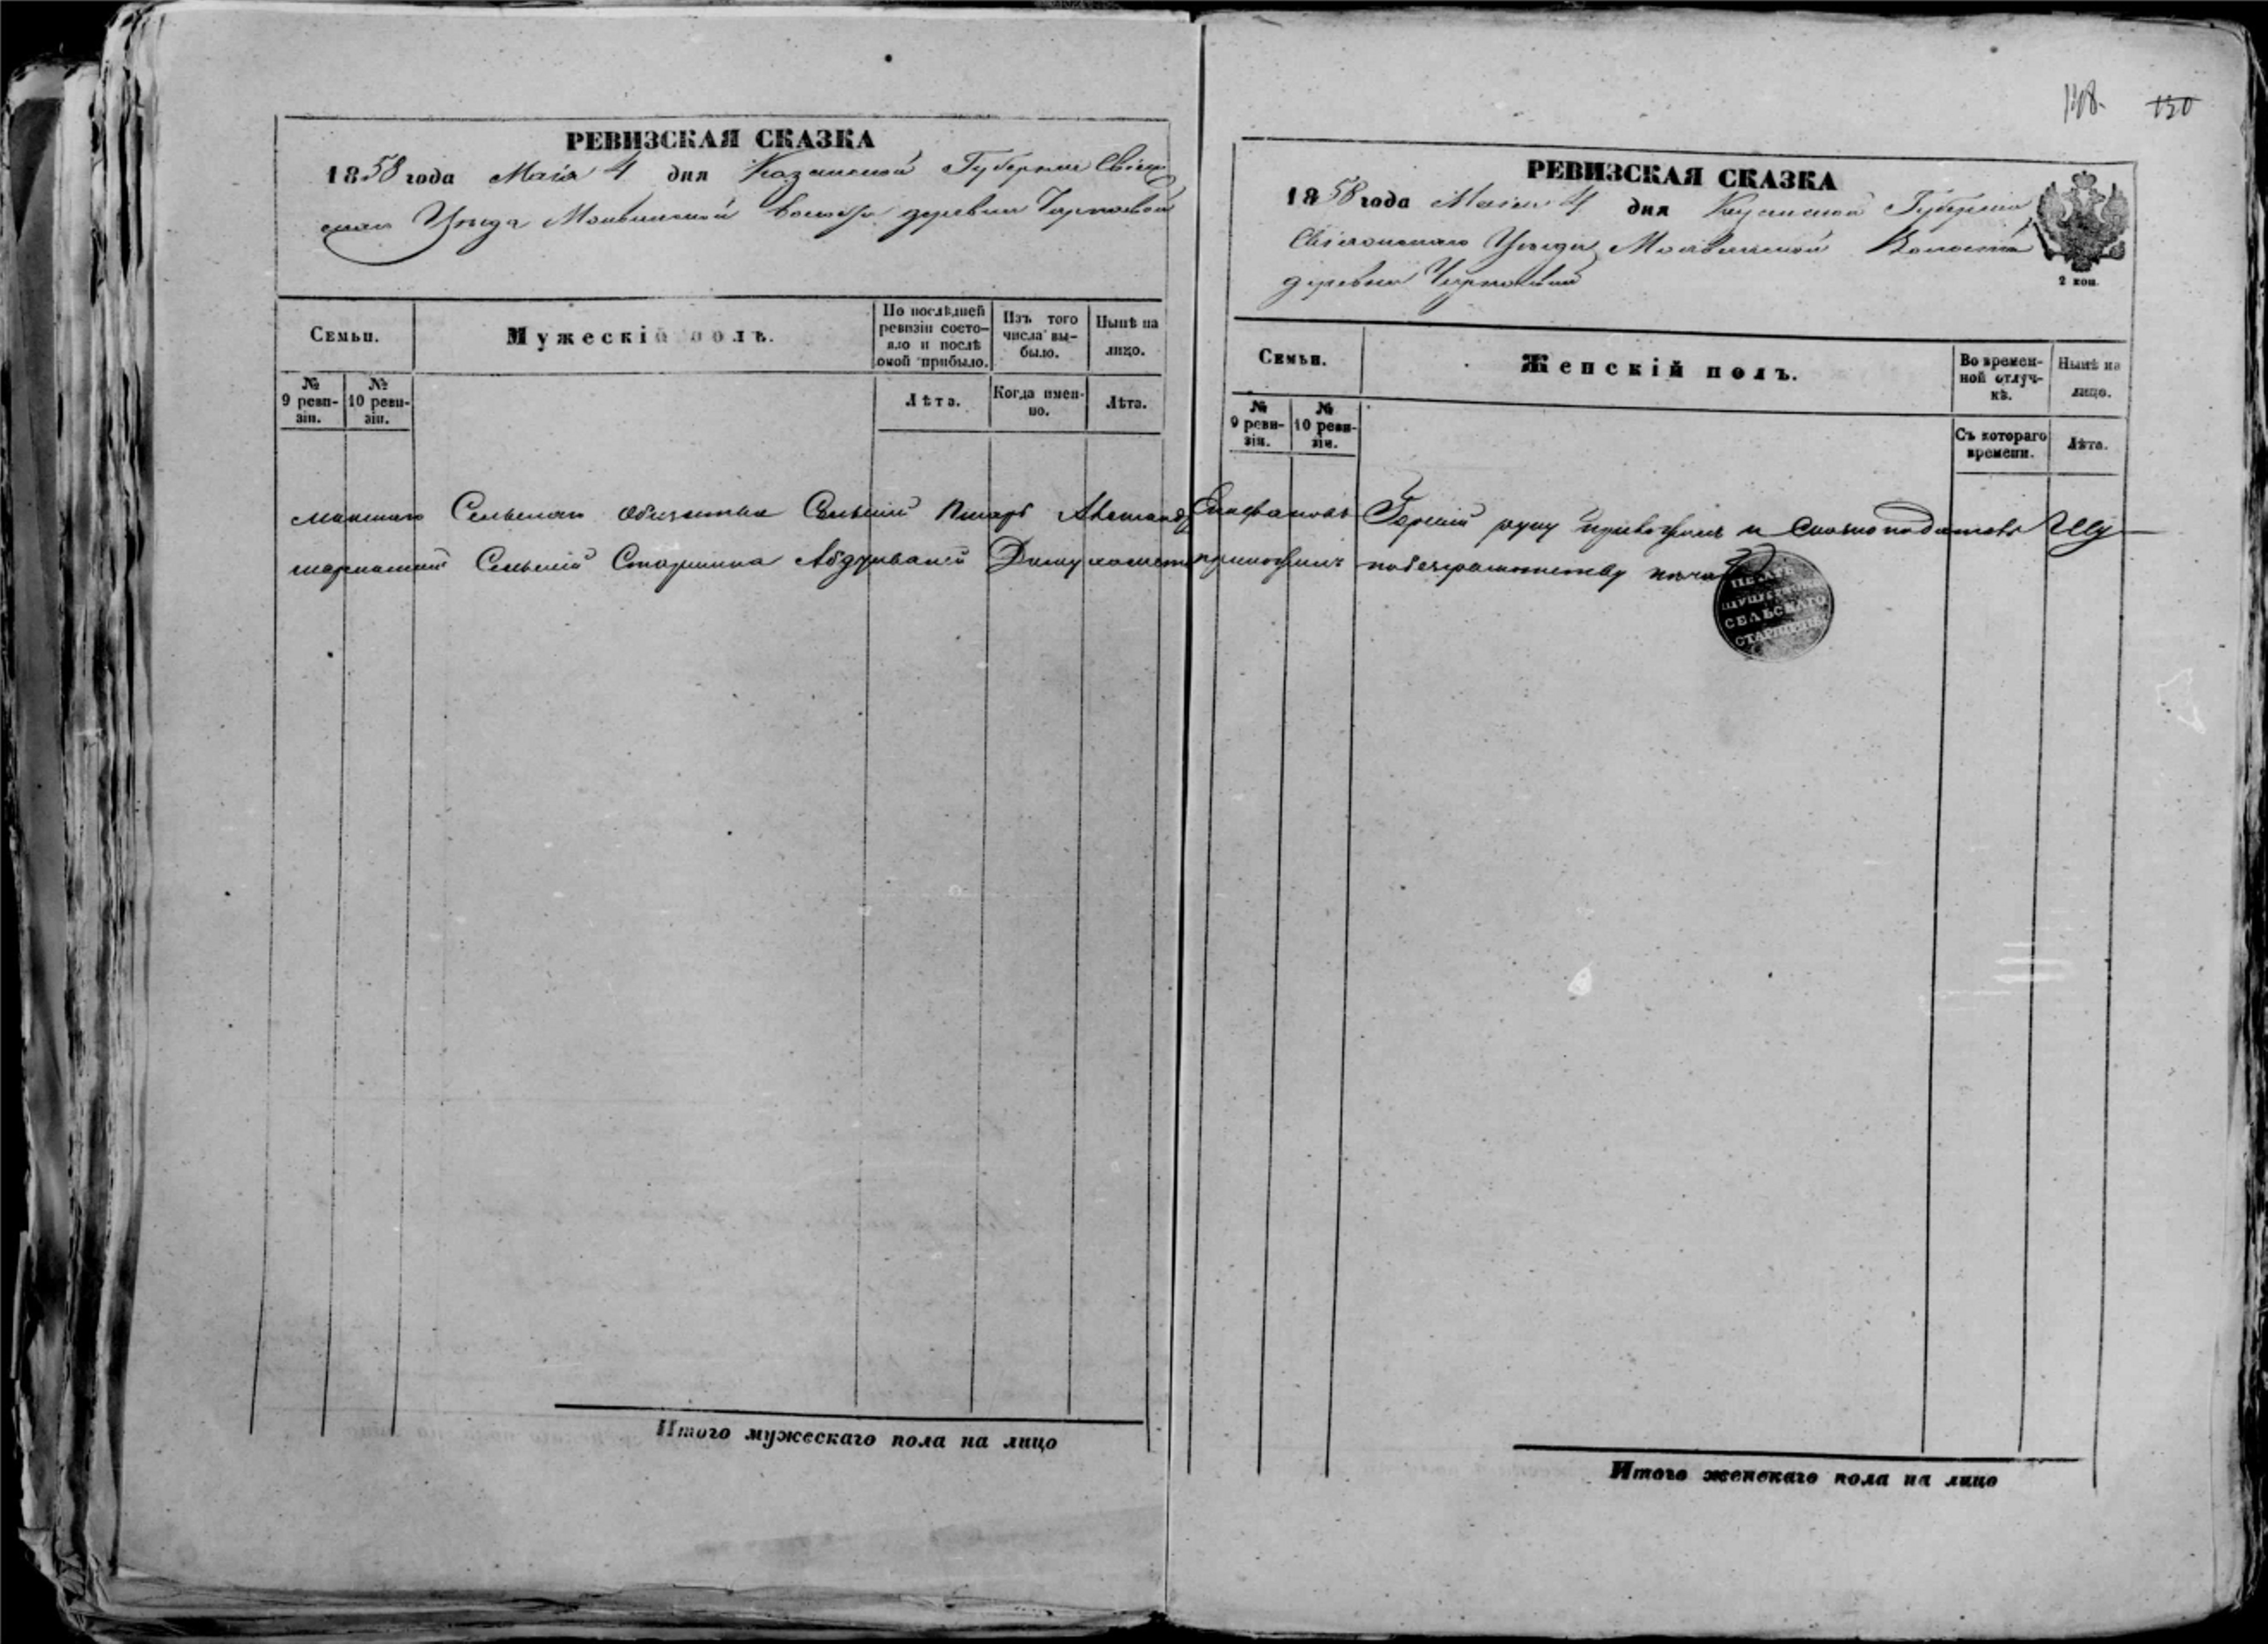 РЕВИЗСКАЯ СКАЗКА
1858 года Маія 4 дня Казанской Губерніи Свіяж
скаго Уѣзда Молвинской волости деревни
Семьи.
Мужескій полъ.
По послѣдней ревизіи состояло и послѣ оной прибыло.
Изъ того числа выбыло.
Нынѣ на лицо.
№ 9 ревизіи.
№ 10 ревизіи.
Лѣта.
Когда именно.
Лѣта.
Сельскаго общества Сельскій Писарь Александр
Сельскій Старшина
Итого мужескаго пола на лицо
148.
150
РЕВИЗСКАЯ СКАЗКА
1858 года Маія 4 дня Казанской Губерніи
Свіяжскаго Уѣзда Молвинской Волости
деревни
2 коп.
Семьи.
Женскій полъ.
Во временной отлучкѣ.
Нынѣ на лицо.
№ 9 ревизіи.
№ 10 ревизіи.
Съ котораго времени.
Лѣта.
руку приложилъ и
приложилъ по безграмотству печать
ПЕЧАТЬ
СЕЛЬСКАГО
СТАРШИНЫ
Итого женскаго пола на лицо